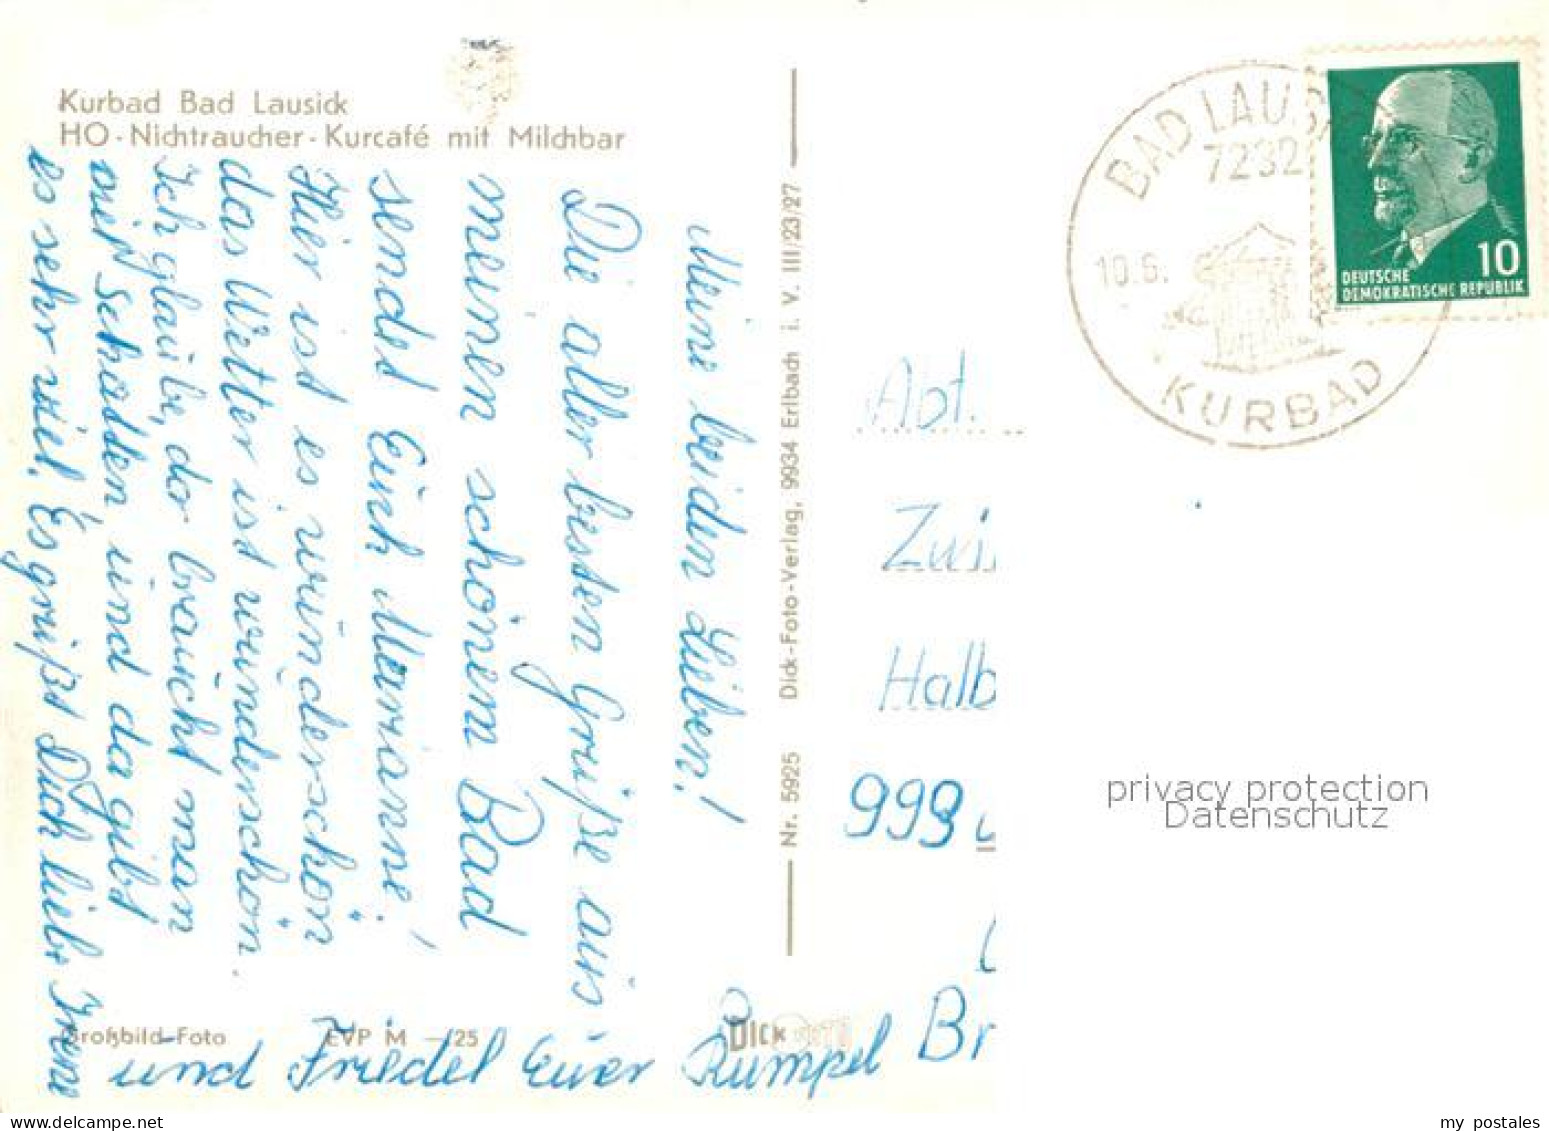 Kurbad Bad Lausick
HO-Nichtraucher-Kurcafé mit Milchbar
Meine beiden Lieben!
Die aller besten Grüße aus
meinen schönem Bad
sendet Euch Marianne!
Hier ist es wünderschön
das Wetter ist wunderschön.
Ich glaube, da braucht man
mit Schatten und da gibt
es sehr viel. Es grüßt Dich liebe Irene
und Friedel Euer Rumpel
Großbild-Foto EVP M —,25
DICK FOTO
Nr. 5925 Dick-Foto-Verlag, 9934 Erlbach i. V. III/23/27
BAD LAUS
7232
10.6.
KURBAD
10
DEUTSCHE
DEMOKRATISCHE REPUBLIK
Abt.
Halb
999
Br
privacy protection
Datenschutz
my postales